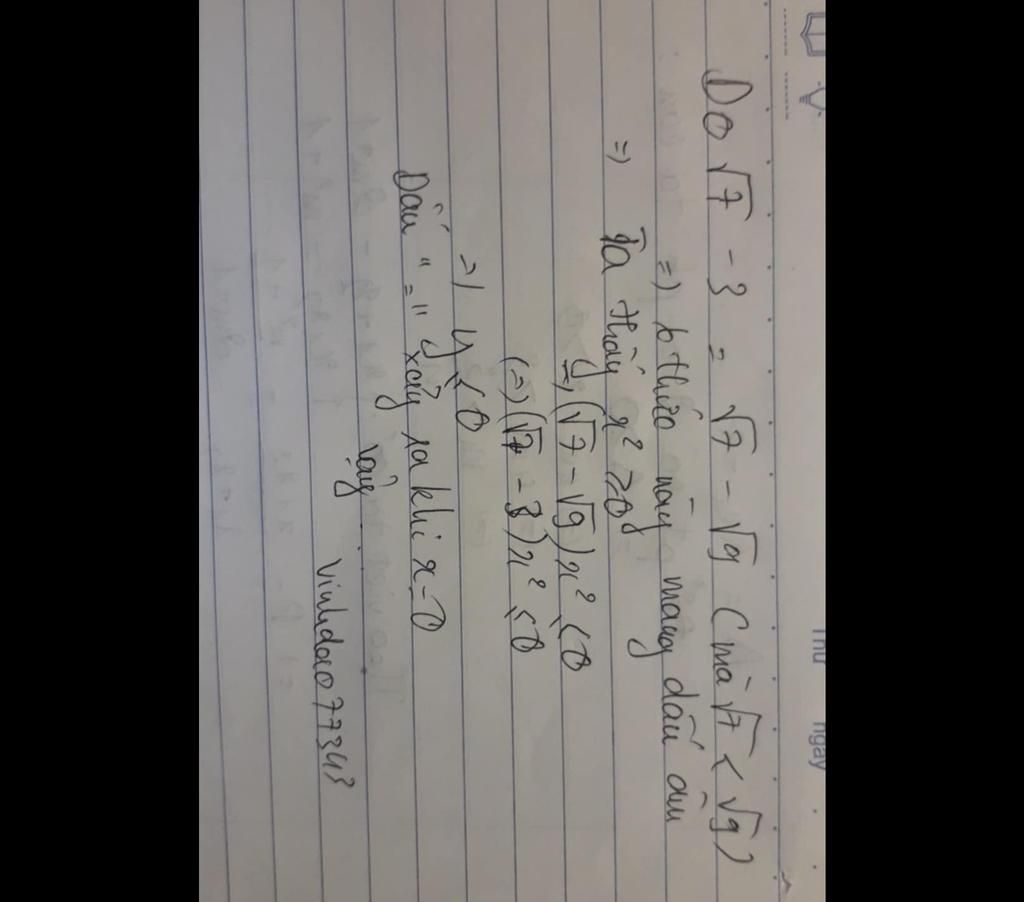 Thứ ngày
Do √7 - 3 = √7 - √9 (mà √7 < √9)
=) b thức này mang dấu âm
=) Ta thấy x² ≥ 0
=) (√7 - √9) x² ≤ 0
(=) (√7 - 3) x² ≤ 0
=) y ≤ 0
Dấu "=" xảy ra khi x = 0
Vậy
Vinhdao77343